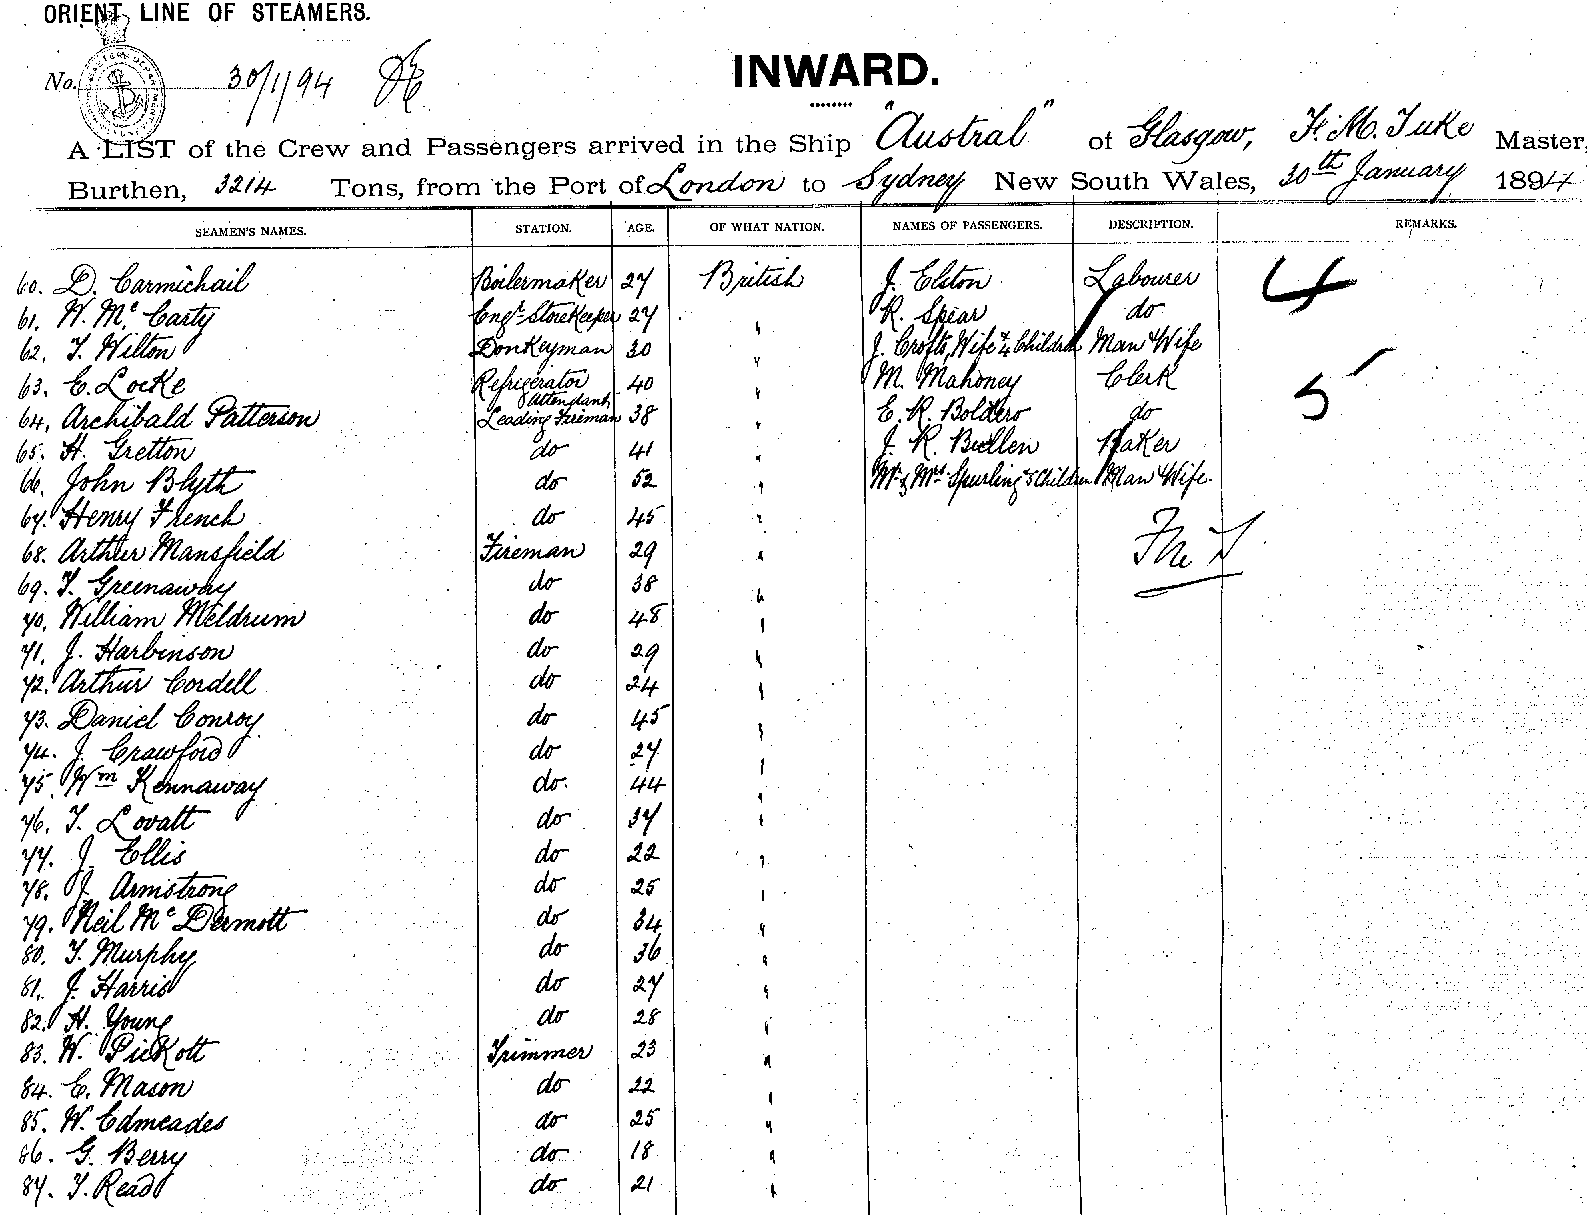 ORIENT LINE OF STEAMERS.
No. 30/1/94
INWARD.
A LIST of the Crew and Passengers arrived in the Ship "Austral" of Glasgow, F. M. Tuke Master,
Burthen, 3214 Tons, from the Port of London to Sydney New South Wales, 30th January 1894
SEAMEN'S NAMES. STATION. AGE. OF WHAT NATION. NAMES OF PASSENGERS. DESCRIPTION. REMARKS.
60. D. Carmichail Boilermaker 27 British J. Elston Labourer 4
61. W. Mc Carty Engr Storekeeper 27 " R. Spear do
62. T. Wilton Donkeyman 30 " J. Crofts, Wife & 4 Children Man & Wife
63. C. Locke Refrigerator Attendant 40 " M. Mahoney Clerk 5
64. Archibald Patterson Leading Fireman 38 " E. R. Boldero do
65. H. Gretton do 41 " J. R. Bullen Baker
66. John Blyth do 52 " Mr & Mrs Spurling & 5 Children Man & Wife.
67. Henry French do 45 "
68. Arthur Mansfield Fireman 29 "
69. T. Greenaway do 38 "
70. William Meldrum do 48 "
71. J. Harbinson do 29 "
72. Arthur Cordell do 24 "
73. Daniel Conroy do 45 "
74. J. Crawford do 27 "
75. Wm Kennaway do. 44 "
76. T. Lovatt do 37 "
77. J. Ellis do 22 "
78. J. Armstrong do 25 "
79. Neil Mc Dermott do 34 "
80. T. Murphy do 36 "
81. J. Harris do 27 "
82. H. Young do 28 "
83. W. Pickott Trimmer 23 "
84. C. Mason do 22 "
85. W. Edmeades do 25 "
86. G. Berry do 18 "
87. T. Read do 21 "